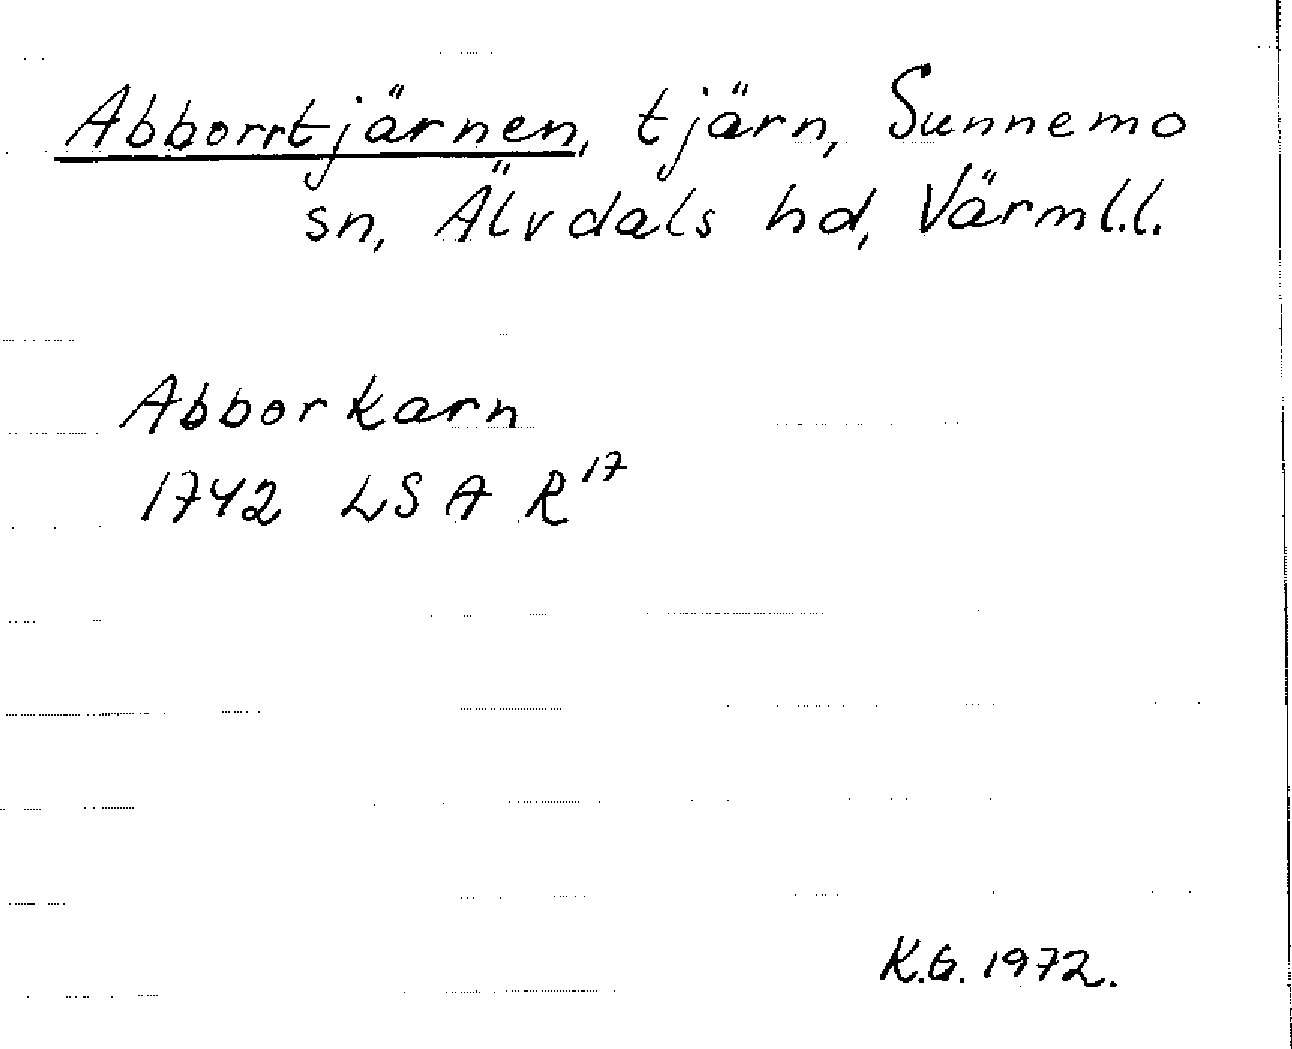 Abborrtjärnen, tjärn, Sunnemo
sn, Älvdals hd, Värml.l.
Abborkarn
1742 LSA R17
K.G. 1972.